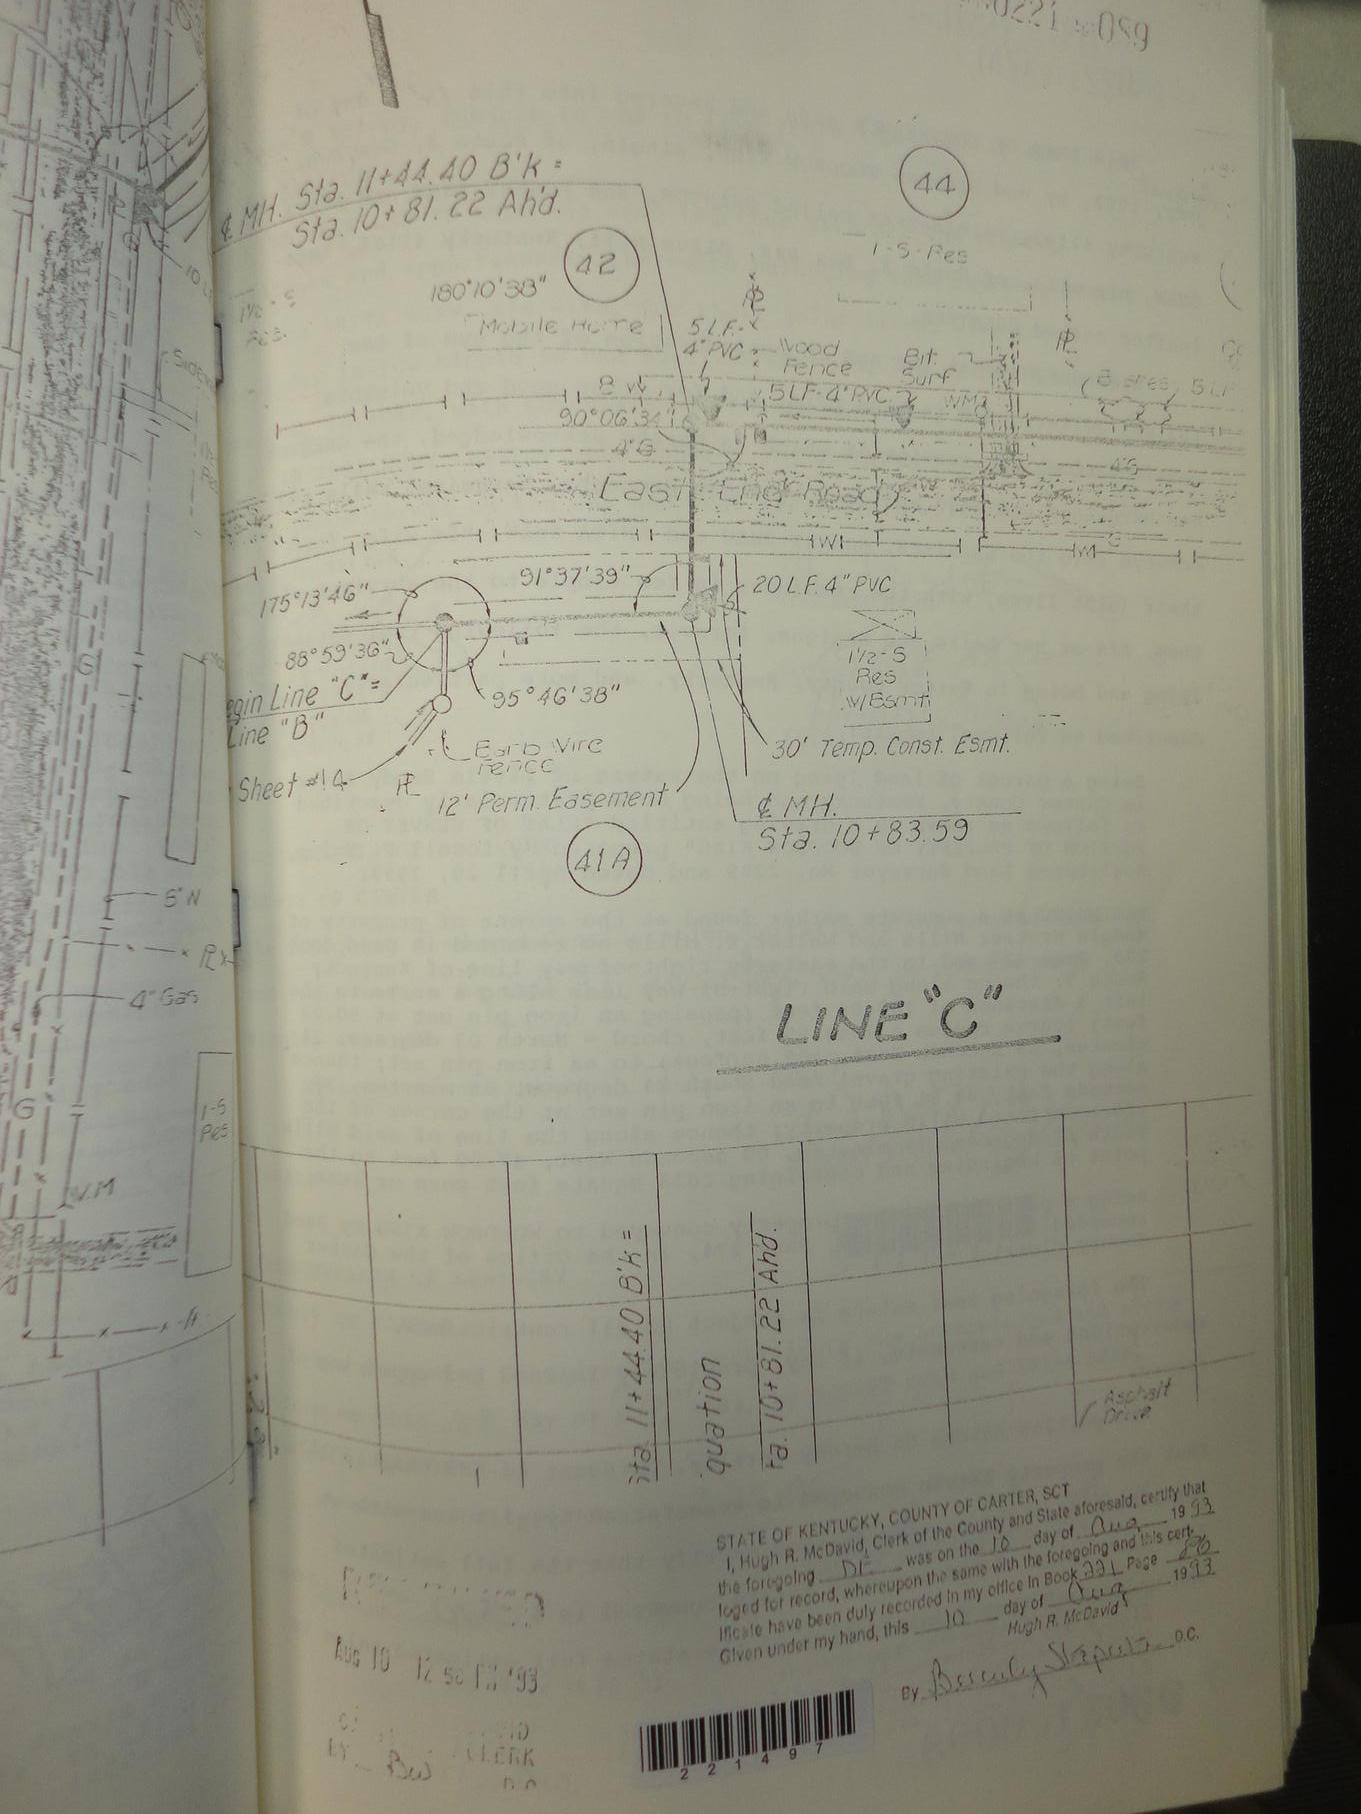 ¢ MH. Sta. 11+44.40 B'k =
Sta. 10+81.22 Ah'd.
42
44
1-S-Res
180°10'38"
Mobile Home
5 L.F.
4" PVC
Wood
Fence
Bit.
Surf
5 LF-4" PVC
WM
90°06'34"
4"G
East End Road
W
W
G
91°37'39"
175°13'46"
20 L.F. 4" PVC
88°59'36"
95°46'38"
1½-S
Res
w/Bsmt
egin Line "C"=
Line "B"
Barb Wire
Fence
30' Temp. Const. Esmt.
Sheet #14
12' Perm. Easement
¢ MH.
Sta. 10+83.59
41A
6" N
4" Gas
G
G
1-S
Res
W.M
LINE "C"
ta. 11+44.40 B'k =
quation
ta. 10+81.22 Ahd.
Asphalt
Drive
STATE OF KENTUCKY, COUNTY OF CARTER, SCT
I, Hugh R. McDavid, Clerk of the County and State aforesaid, certify that
the foregoing DE was on the 10 day of Aug 1993
loged for record, whereupon the same with the foregoing and this cert-
ificate have been duly recorded in my office in Book 221 Page
Given under my hand, this 10 day of Aug 1993
Hugh R. McDavid
By Beverly D.C.
Aug 10 12 58 '93
CLERK
221497